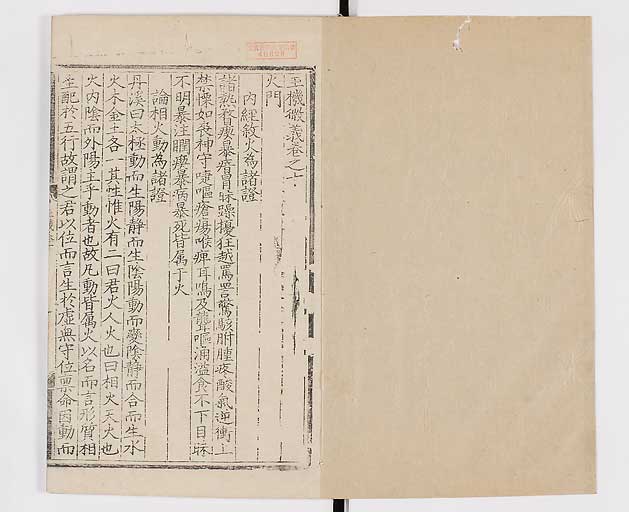 玉機微義卷之十
火門
內經敘火為諸證
諸熱瞀瘛暴瘖冒昧躁擾狂越罵詈驚駭胕腫疼酸氣逆衝上
禁慄如喪神守嚏嘔瘡瘍喉痺耳鳴及聾嘔涌溢食不下目昧
不明暴注瞤瘛暴病暴死皆属于火
論相火動為諸證
丹溪曰太極動而生陽静而生陰陽動而變陰静而合而生水
火木金土各一其性惟火有二曰君火人火也曰相火天火也
火内陰而外陽主乎動者也故凡動皆属火以名而言形質相
生配於五行故謂之君以位而言生於虛無守位禀命因動而